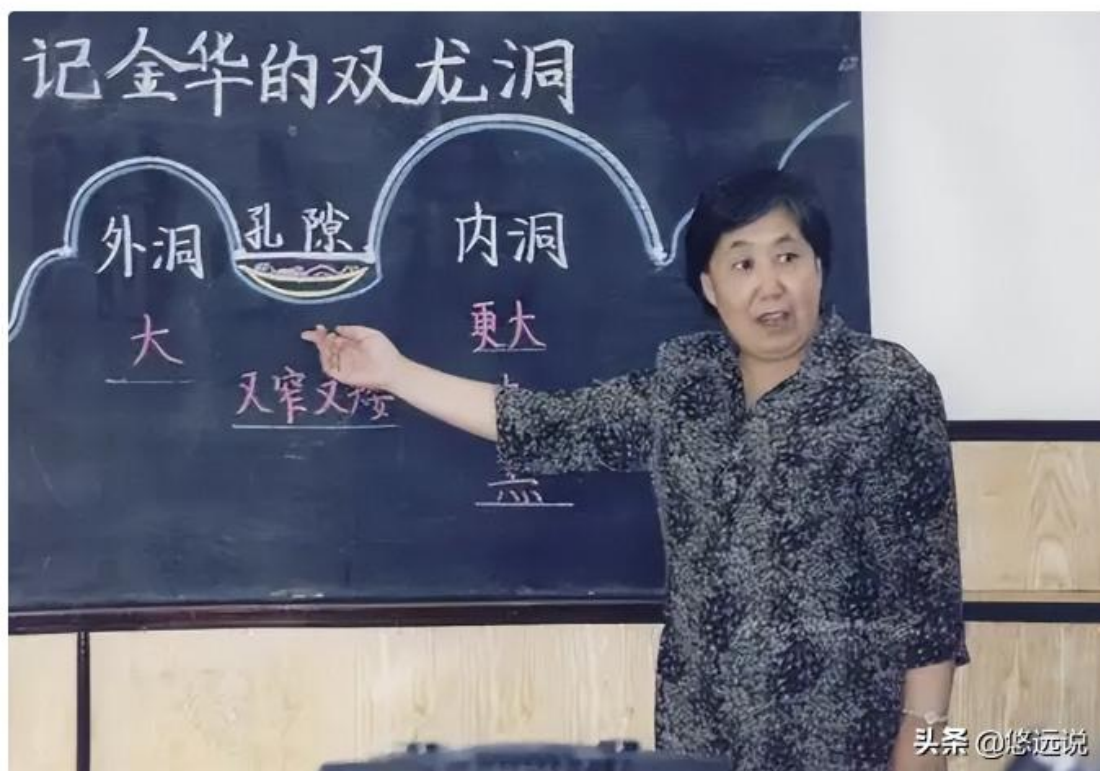 记金华的双龙洞
外洞 孔隙 内洞
大 更大
又窄又矮
头条 @悠远说